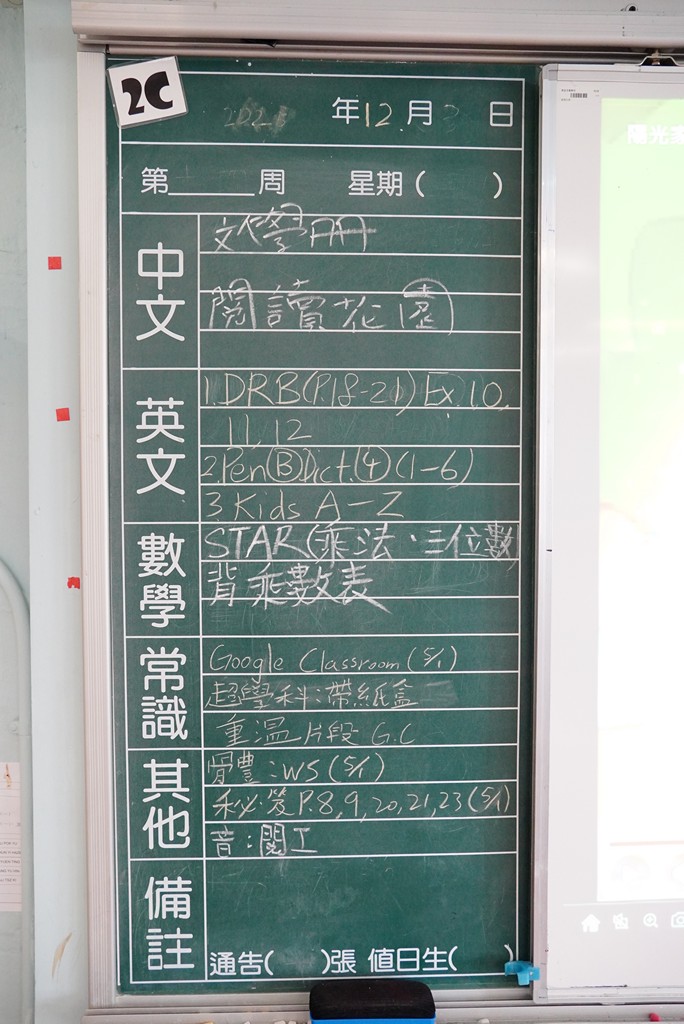 2C
年12月 日
第 周 星期( )
中文
文化學冊
閱讀花園
英文
1.DRB(P.18-21) Ex.10,
11, 12
2.Pen Ⓑ Dict.④(1-6)
3.Kids A-Z
數學
STAR(乘法、三位數
背乘數表
常識
Google Classroom (5/1)
超學科:帶紙盒
重溫片段 G.C
其他
WS (5/1)
P.8,9,20,21,23 (5/1)
音:
備註
通告( )張 值日生( )
陽光